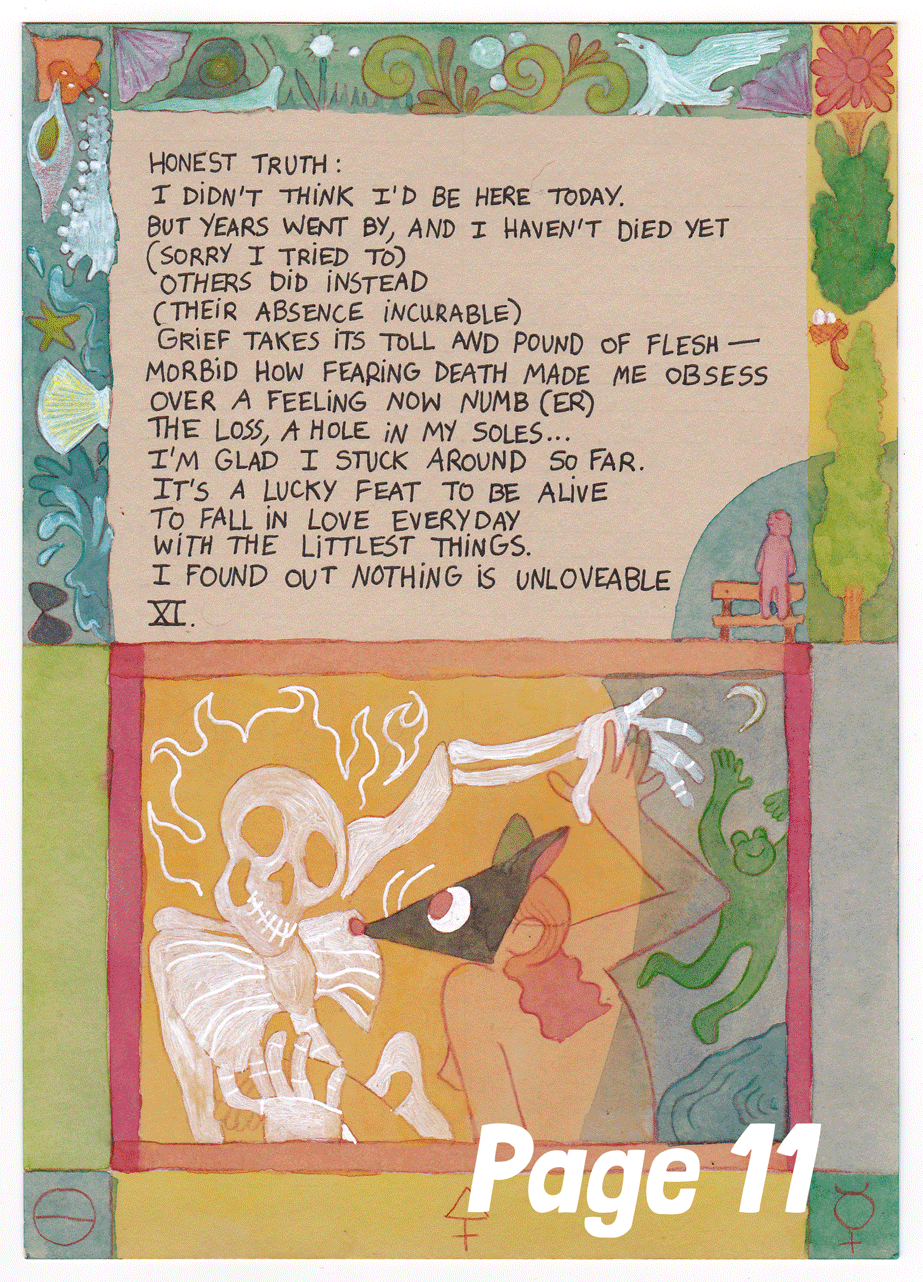 HONEST TRUTH:
I DIDN'T THINK I'D BE HERE TODAY.
BUT YEARS WENT BY, AND I HAVEN'T DIED YET
(SORRY I TRIED TO)
OTHERS DID INSTEAD
(THEIR ABSENCE INCURABLE)
GRIEF TAKES ITS TOLL AND POUND OF FLESH —
MORBID HOW FEARING DEATH MADE ME OBSESS
OVER A FEELING NOW NUMB (ER)
THE LOSS, A HOLE IN MY SOLES...
I'M GLAD I STUCK AROUND SO FAR.
IT'S A LUCKY FEAT TO BE ALIVE
TO FALL IN LOVE EVERYDAY
WITH THE LITTLEST THINGS.
I FOUND OUT NOTHING IS UNLOVEABLE
XI.
Page 11